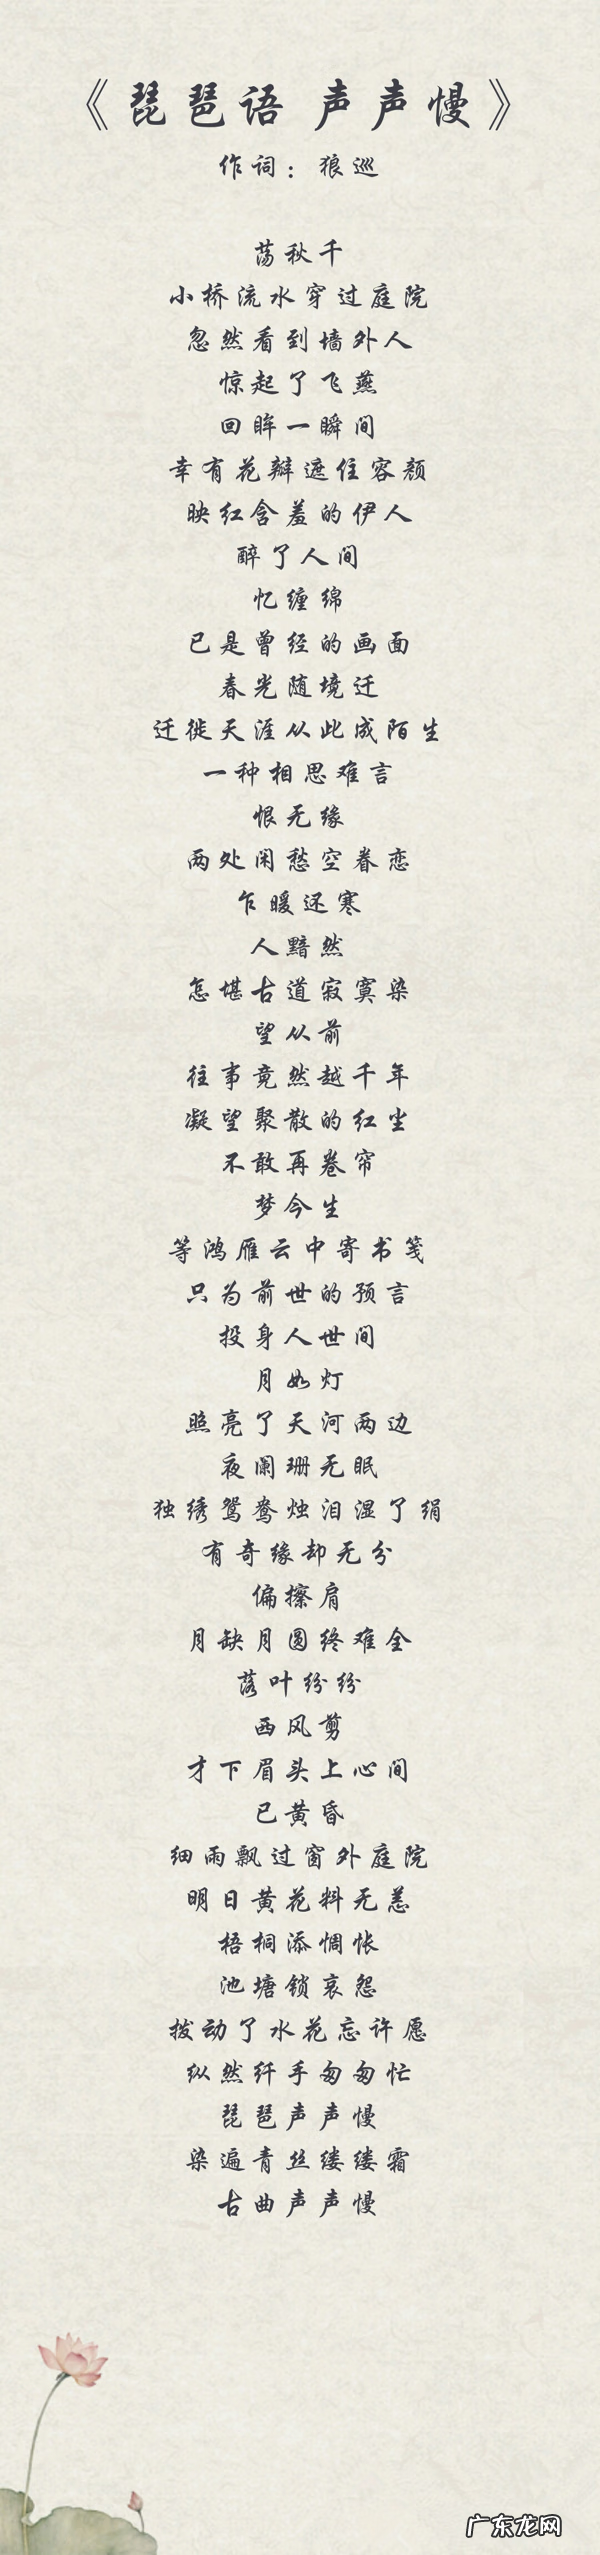 《琵琶语 声声慢》
作词：狼巡
荡秋千
小桥流水穿过庭院
忽然看到墙外人
惊起了飞燕
回眸一瞬间
幸有花瓣遮住容颜
映红含羞的伊人
醉了人间
忆缠绵
已是曾经的画面
春光随境迁
迁徙天涯从此成陌生
一种相思难言
恨无缘
两处闲愁空眷恋
乍暖还寒
人黯然
怎堪古道寂寞染
望从前
往事竟然越千年
凝望聚散的红尘
不敢再卷帘
梦今生
等鸿雁云中寄书笺
只为前世的预言
投身人世间
月如灯
照亮了天河两边
夜阑珊无眠
独绣鸳鸯烛泪湿了绢
有奇缘却无分
偏擦肩
月缺月圆终难全
落叶纷纷
西风剪
才下眉头上心间
已黄昏
细雨飘过窗外庭院
明日黄花料无恙
梧桐添惆怅
池塘锁哀怨
拨动了水花忘许愿
纵然纤手匆匆忙
琵琶声声慢
染遍青丝缕缕霜
古曲声声慢
广东龙网